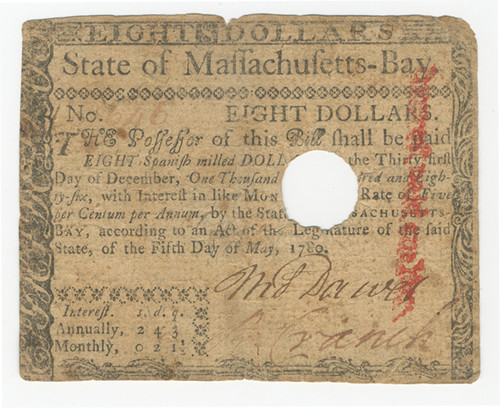 EIGHT DOLLARS
State of Maſſachuſetts-Bay
No. EIGHT DOLLARS.
THE Poſſeſſor of this Bill ſhall be paid
EIGHT Spaniſh milled DOLL the Thirty firſt
Day of December, One Thouſand dred and Eigh-
ty-ſix, with Intereſt in like MON Rate of Five
per Centum per Annum, by the Stat SSACHUSETTS-
BAY, according to an Act of the Legiſlature of the ſaid
State, of the Fifth Day of May, 1780.
Intereſt. s. d. q.
Annually, 2 4 3
Monthly, 0 2 1½
Cranch